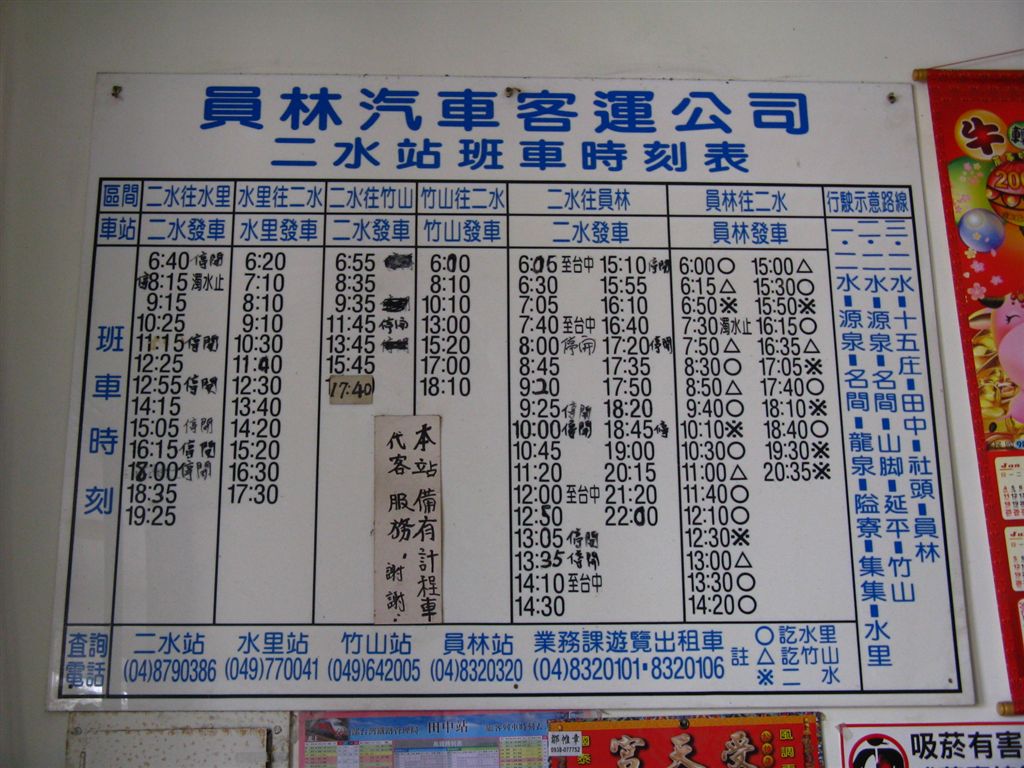 員林汽車客運公司
二水站班車時刻表
區間 二水往水里 水里往二水 二水往竹山 竹山往二水 二水往員林 員林往二水 行駛示意路線
車站 二水發車 水里發車 二水發車 竹山發車 二水發車 員林發車
班車時刻
6:40 停開
8:15 濁水止
9:15
10:25
11:15 停開
12:25
12:55 停開
14:15
15:05 停開
16:15 停開
18:00 停開
18:35
19:25
6:20
7:10
8:10
9:10
10:30
11:40
12:30
13:40
14:20
15:20
16:30
17:30
6:55
8:35
9:35
11:45 停開
13:45 停開
15:45
17:40
6:00
8:10
10:10
13:00
15:20
17:00
18:10
本站備有計程車
代客服務.謝謝.
6:05 至台中
6:30
7:05
7:40 至台中
8:00 停開
8:45
9:20
9:25 停開
10:00 停開
10:45
11:20
12:00 至台中
12:50
13:05 停開
13:35 停開
14:10 至台中
14:30
15:10 停開
15:55
16:10
16:40
17:20 停開
17:35
17:50
18:20
18:45 停
19:00
20:15
21:20
22:00
6:00○
6:15△
6:50※
7:30 濁水止
7:50△
8:30○
8:50△
9:40○
10:10※
10:30○
11:00△
11:40○
12:10○
12:30※
13:00△
13:30○
14:20○
15:00△
15:30○
15:50※
16:15○
16:35△
17:05※
17:40○
18:10※
18:40○
19:30※
20:35※
一·二水-源泉-名間-龍泉-隘寮-集集-水里
二·二水-源泉-名間-山脚-延平-竹山
三·二水-十五庄-田中-社頭-員林
查詢電話
二水站 水里站 竹山站 員林站 業務課遊覽出租車
(04)8790386 (049)770041 (049)642005 (04)8320320 (04)8320101·8320106
註
○訖水里
△訖竹山
※二水
牛
200
Jan
田中站
鄒惟章
0938-077752
受天宮
風調
吸菸有害